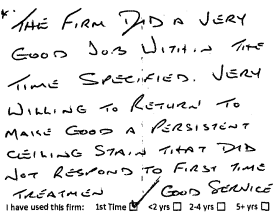 THE FIRM DID A VERY
GOOD JOB WITHIN THE
TIME SPECIFIED. VERY
WILLING TO RETURN TO
MAKE GOOD A PERSISTENT
CEILING STAIN THAT DID
NOT RESPOND TO FIRST TIME
TREATMEN GOOD SERVICE
I have used this firm: 1st Time ☑ <2 yrs ☐ 2-4 yrs ☐ 5+ yrs ☐